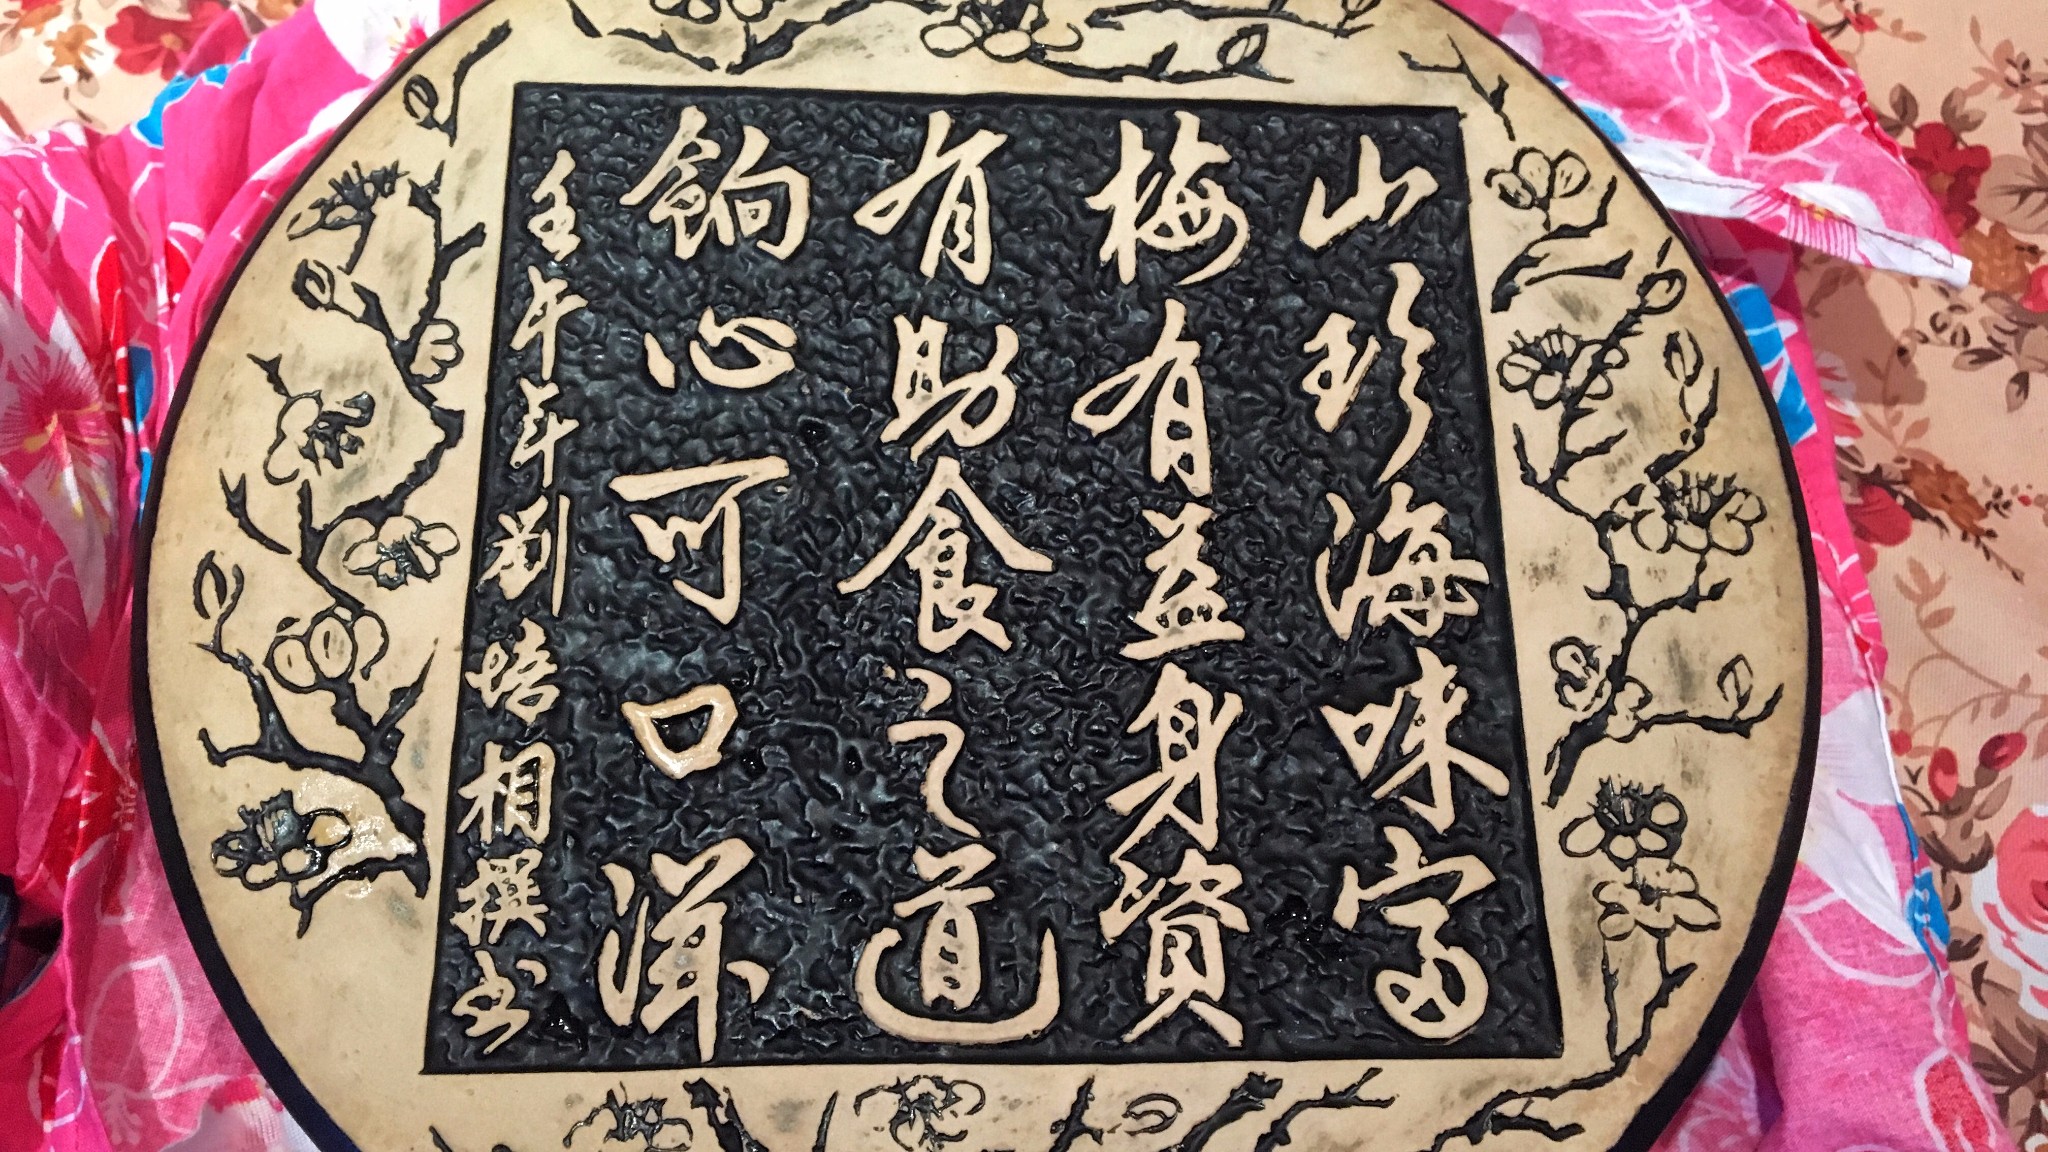 山珍海味富
梅有益身資
有助食之道
餉心可口
壬午年劉培相撰书